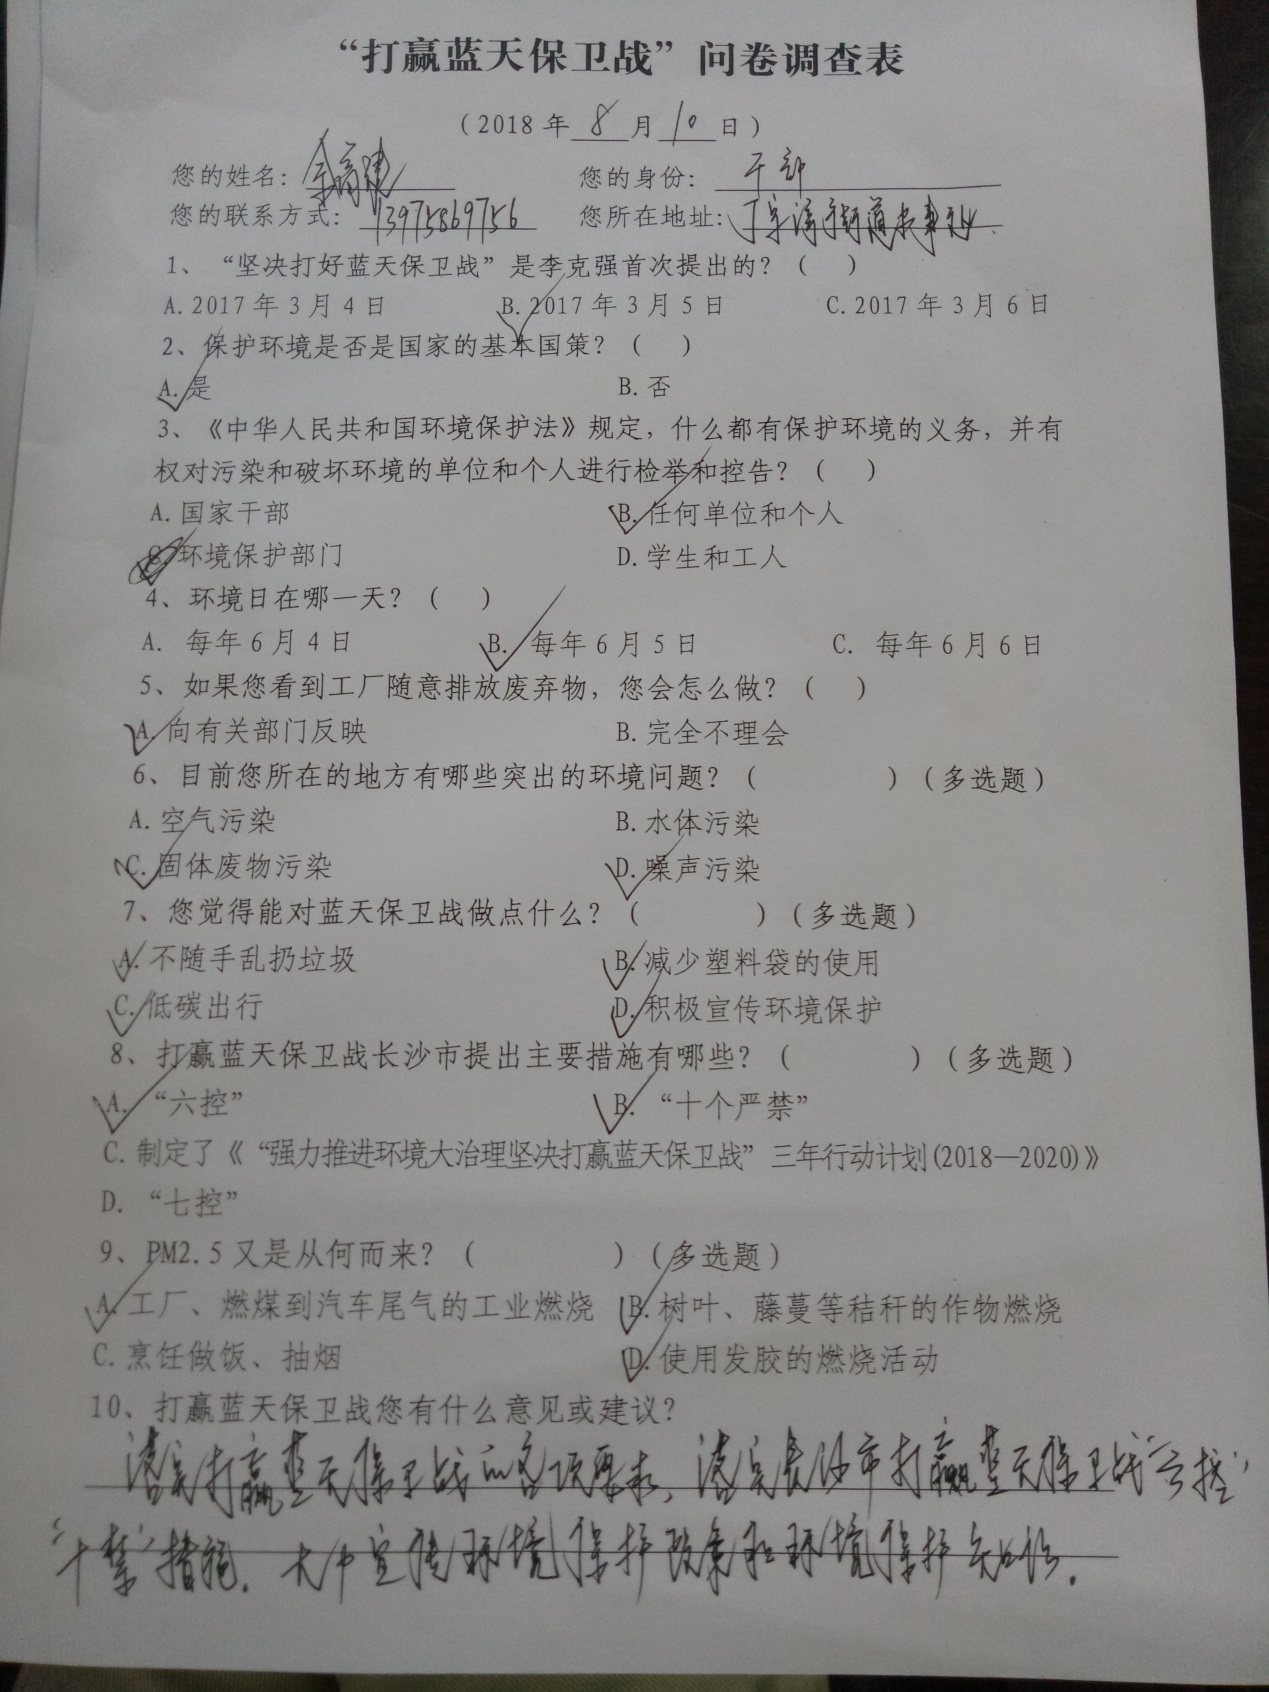 “打赢蓝天保卫战”问卷调查表
(2018年 8 月 10 日)
您的姓名: 您的身份: 干部
您的联系方式: 13975869756 您所在地址: 丁字湾街道
1、“坚决打好蓝天保卫战”是李克强首次提出的?( )
A.2017年3月4日 B.2017年3月5日 C.2017年3月6日
2、保护环境是否是国家的基本国策?( )
A.是 B.否
3、《中华人民共和国环境保护法》规定,什么都有保护环境的义务,并有
权对污染和破坏环境的单位和个人进行检举和控告?( )
A.国家干部 B.任何单位和个人
C.环境保护部门 D.学生和工人
4、环境日在哪一天?( )
A. 每年6月4日 B. 每年6月5日 C. 每年6月6日
5、如果您看到工厂随意排放废弃物,您会怎么做?( )
A.向有关部门反映 B.完全不理会
6、目前您所在的地方有哪些突出的环境问题?( )(多选题)
A.空气污染 B.水体污染
C.固体废物污染 D.噪声污染
7、您觉得能对蓝天保卫战做点什么?( )(多选题)
A.不随手乱扔垃圾 B.减少塑料袋的使用
C.低碳出行 D.积极宣传环境保护
8、打赢蓝天保卫战长沙市提出主要措施有哪些?( )(多选题)
A. “六控” B. “十个严禁”
C.制定了《“强力推进环境大治理坚决打赢蓝天保卫战”三年行动计划(2018—2020)》
D. “七控”
9、PM2.5又是从何而来?( )(多选题)
A.工厂、燃煤到汽车尾气的工业燃烧 B.树叶、藤蔓等秸秆的作物燃烧
C.烹饪做饭、抽烟 D.使用发胶的燃烧活动
10、打赢蓝天保卫战您有什么意见或建议?
落实打赢蓝天保卫战的各项要求,落实长沙市打赢蓝天保卫战“六控”
“十禁”措施。大力宣传环境保护政策和环境保护知识。